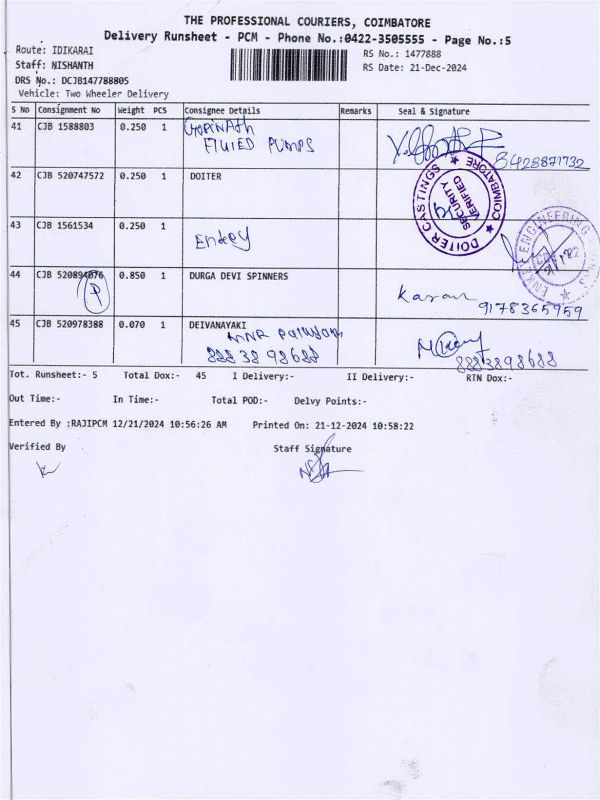 THE PROFESSIONAL COURIERS, COIMBATORE
Delivery Runsheet - PCM - Phone No.:0422-3505555 - Page No.:5
Route: IDIKARAI
RS No.: 1477888
Staff: NISHANTH
RS Date: 21-Dec-2024
DRS No.: DCJB147788805
Vehicle: Two Wheeler Delivery
S No Consignment No Weight PCS Consignee Details Remarks Seal & Signature
41 CJB 1588803 0.250 1 GOPINATH
FLUIED PUMPS
8428871732
42 CJB 520747572 0.250 1 DOITER
DOITER CASTINGS ★ COIMBATORE ★
SECURITY VERIFIED
43 CJB 1561534 0.250 1
Enkey
ENGINEERING
44 CJB 520894076 0.850 1 DURGA DEVI SPINNERS
P
Karan
9178365959
45 CJB 520978388 0.070 1 DEIVANAYAKI
MNR
88838 98688
8883898688
Tot. Runsheet:- 5 Total Dox:- 45 I Delivery:- II Delivery:- RTN Dox:-
Out Time:- In Time:- Total POD:- Delvy Points:-
Entered By :RAJIPCM 12/21/2024 10:56:26 AM Printed On: 21-12-2024 10:58:22
Verified By Staff Signature